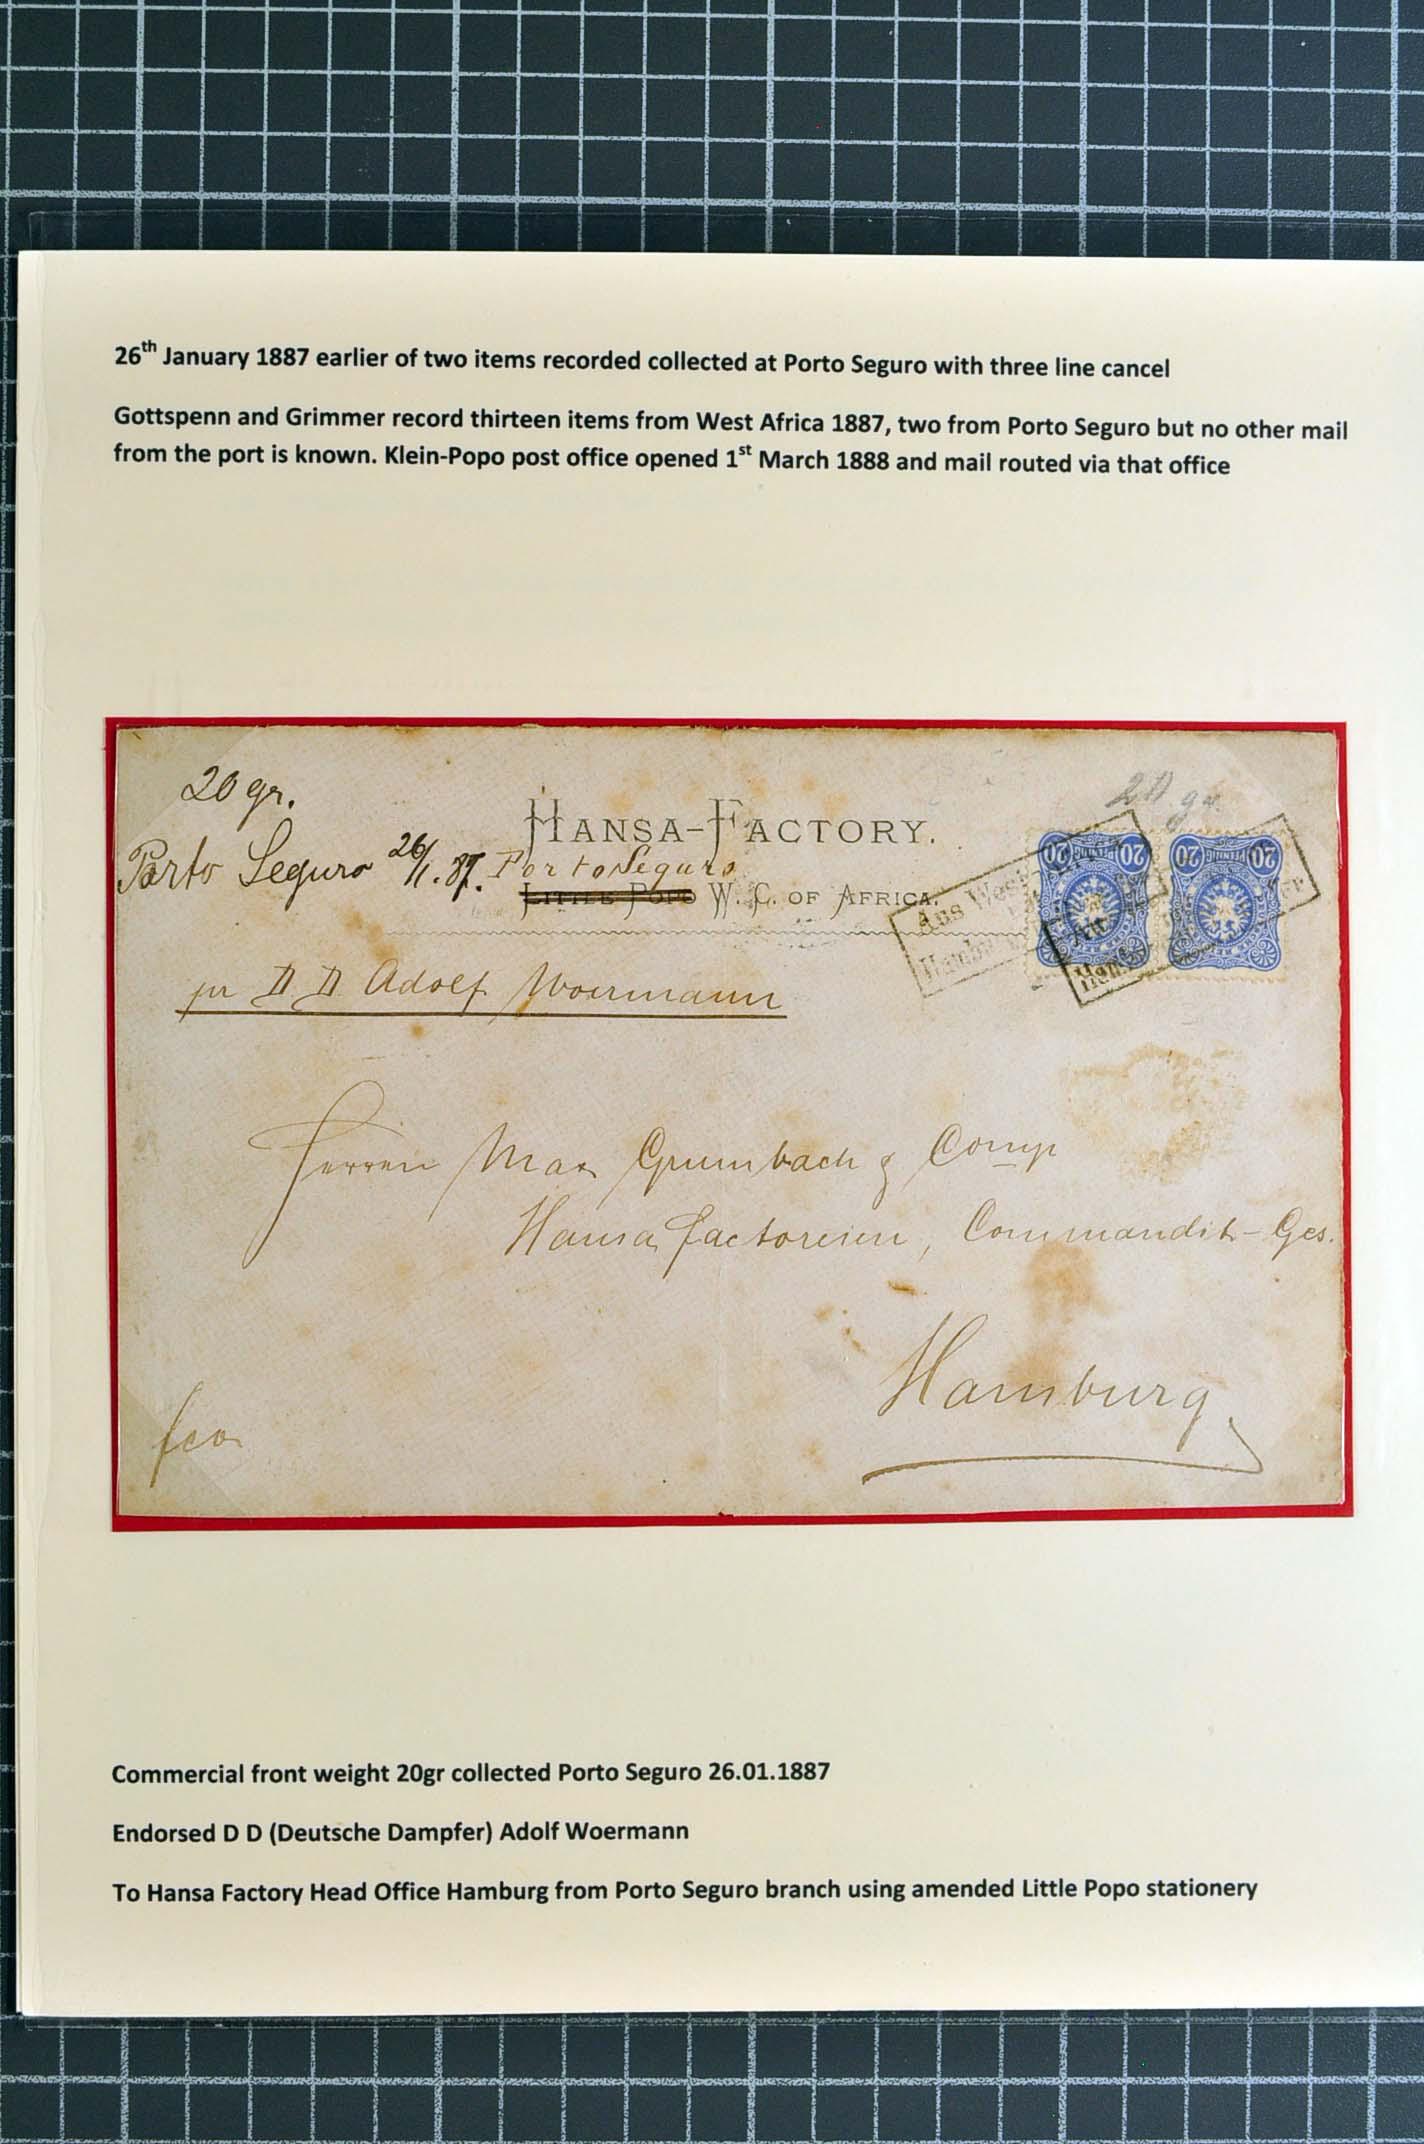 26th January 1887 earlier of two items recorded collected at Porto Seguro with three line cancel
Gottspenn and Grimmer record thirteen items from West Africa 1887, two from Porto Seguro but no other mail
from the port is known. Klein-Popo post office opened 1st March 1888 and mail routed via that office
20 gr.
20 gr.
HANSA-FACTORY.
Porto Seguro 26/1. 87. Porto Seguro
LITTLE POPO W. C. OF AFRICA.
20 PFENNIG 20
20 PFENNIG 20
Aus West
Hamb
Aus
Ham
pr D D Adolf Woermann
Herren Max Grumbach & Comp
Hansa Factoreien, Commandit-Ges.
Hamburg
fco
Commercial front weight 20gr collected Porto Seguro 26.01.1887
Endorsed D D (Deutsche Dampfer) Adolf Woermann
To Hansa Factory Head Office Hamburg from Porto Seguro branch using amended Little Popo stationery